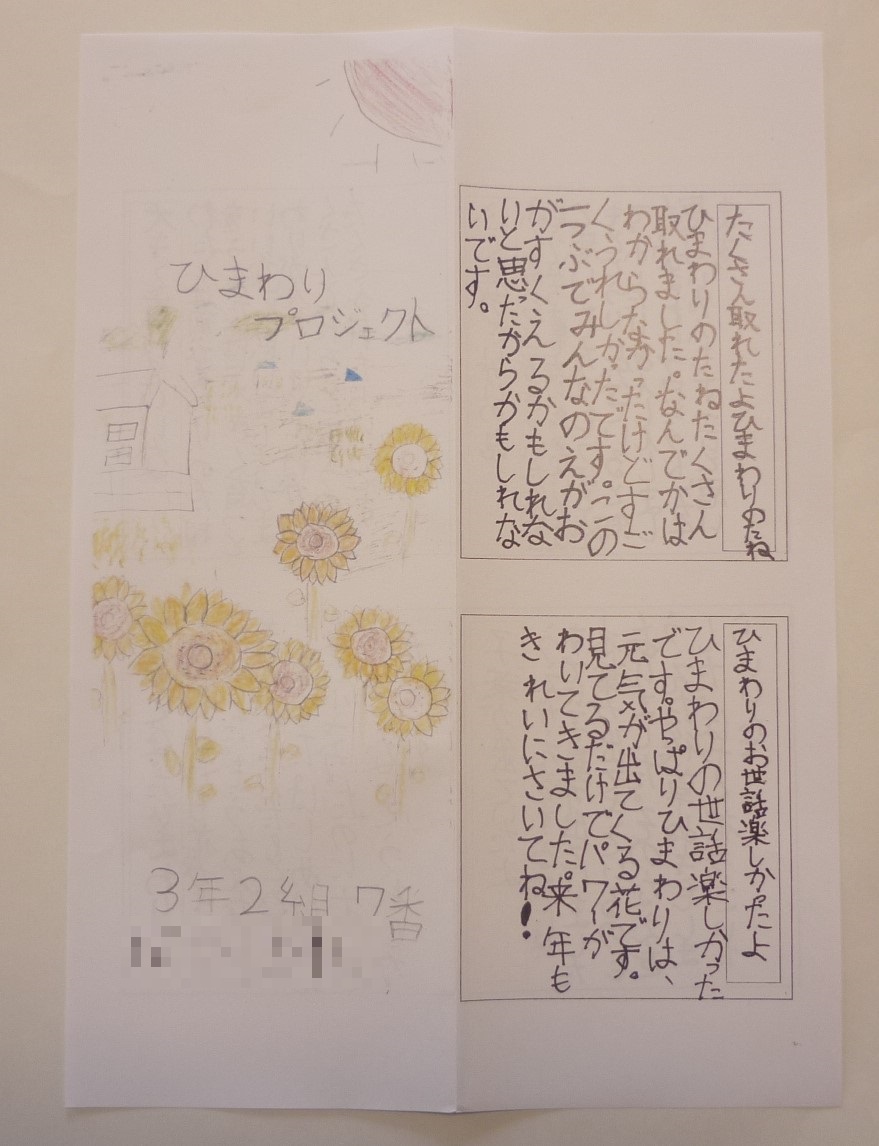 ひまわり
プロジェクト
3年2組 7番
たくさん取れたよひまわりのたね
ひまわりのたねたくさん
取れました。なんでかは
わからなかったけどすご
くうれしかったです。この
一つぶでみんなのえがお
がすくえるかもしれな
いと思ったからかもしれな
いです。
ひまわりのお世話楽しかったよ
ひまわりの世話楽しかった
です。やっぱりひまわりは、
元気が出てくる花です。
見てるだけでパワーが
わいてきました。来年も
きれいにさいてね！